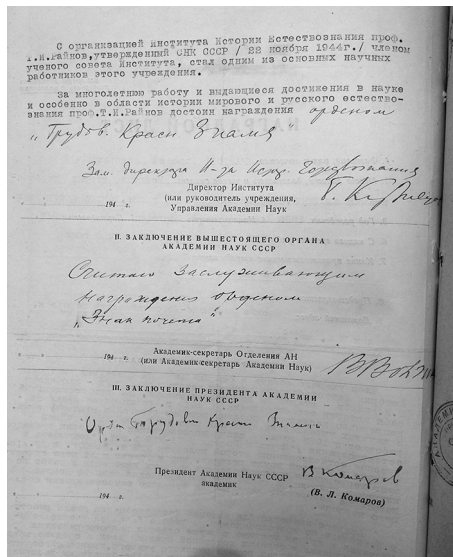 С организацией института Истории Естествознания проф.
Т.И.Райнов, утвержденный СНК СССР / 22 ноября 1944г./ членом
ученого совета Института, стал одним из основных научных
работников этого учреждения.
За многолетнюю работу и выдающиеся достижения в науке
и особенно в области истории мирового и русского естество-
знания проф.Т.И.Райнов достоин награждения орденом
„Трудов. Красн Знамя"
Зам. директора И-та Истор. Естествознания
Директор Института
(или руководитель учреждения,
Управления Академии Наук
194 г.
II. ЗАКЛЮЧЕНИЕ ВЫШЕСТОЯЩЕГО ОРГАНА
АКАДЕМИИ НАУК СССР
Считаю заслуживающим
награждения орденом
„Знак почета"
Академик-секретарь Отделения АН
194 г.
(или Академик-секретарь Академии Наук)
III. ЗАКЛЮЧЕНИЕ ПРЕЗИДЕНТА АКАДЕМИИ
НАУК СССР
Орден Трудового Красн Знамени
Президент Академии Наук СССР
академик
В Комаров
(В. Л. Комаров)
194 г.